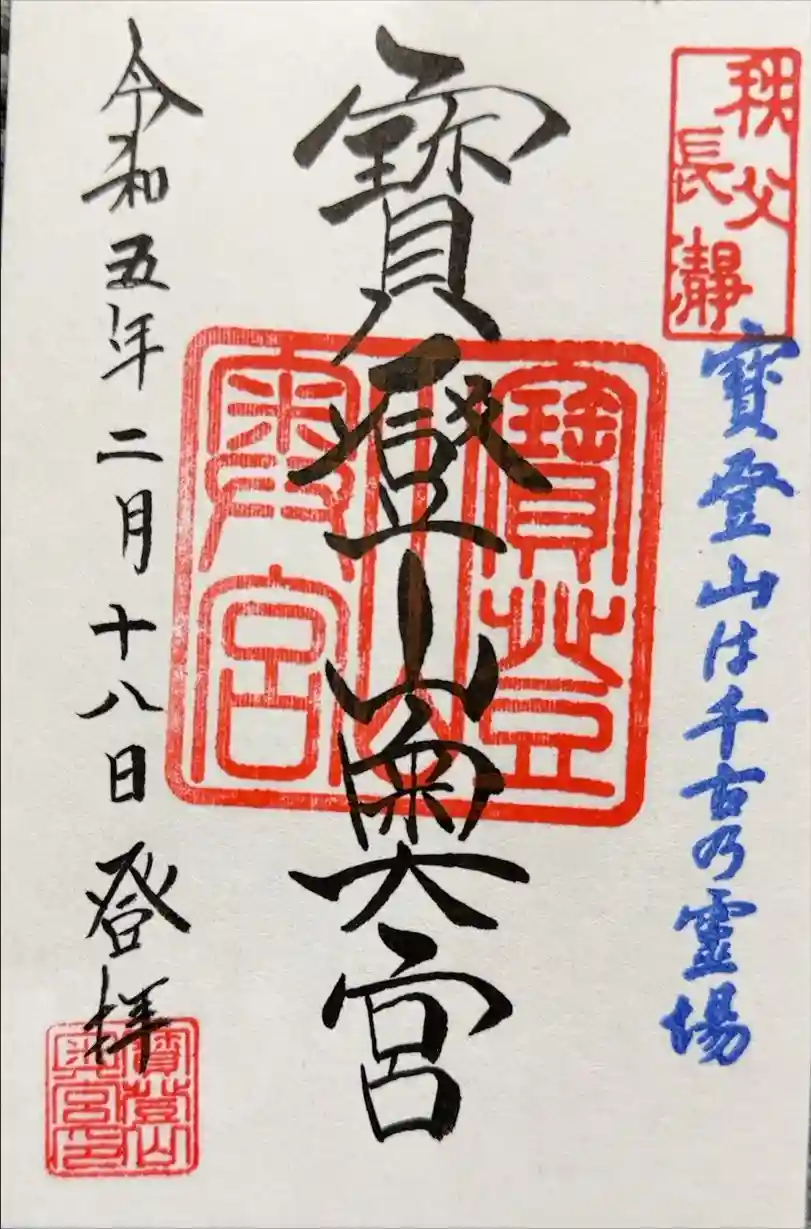 秩父
長瀞
寳登山は千古乃霊場
寳登山奥宮
寳登
山
奥宮
令和五年二月十八日登拝
寳登山
奥宮印